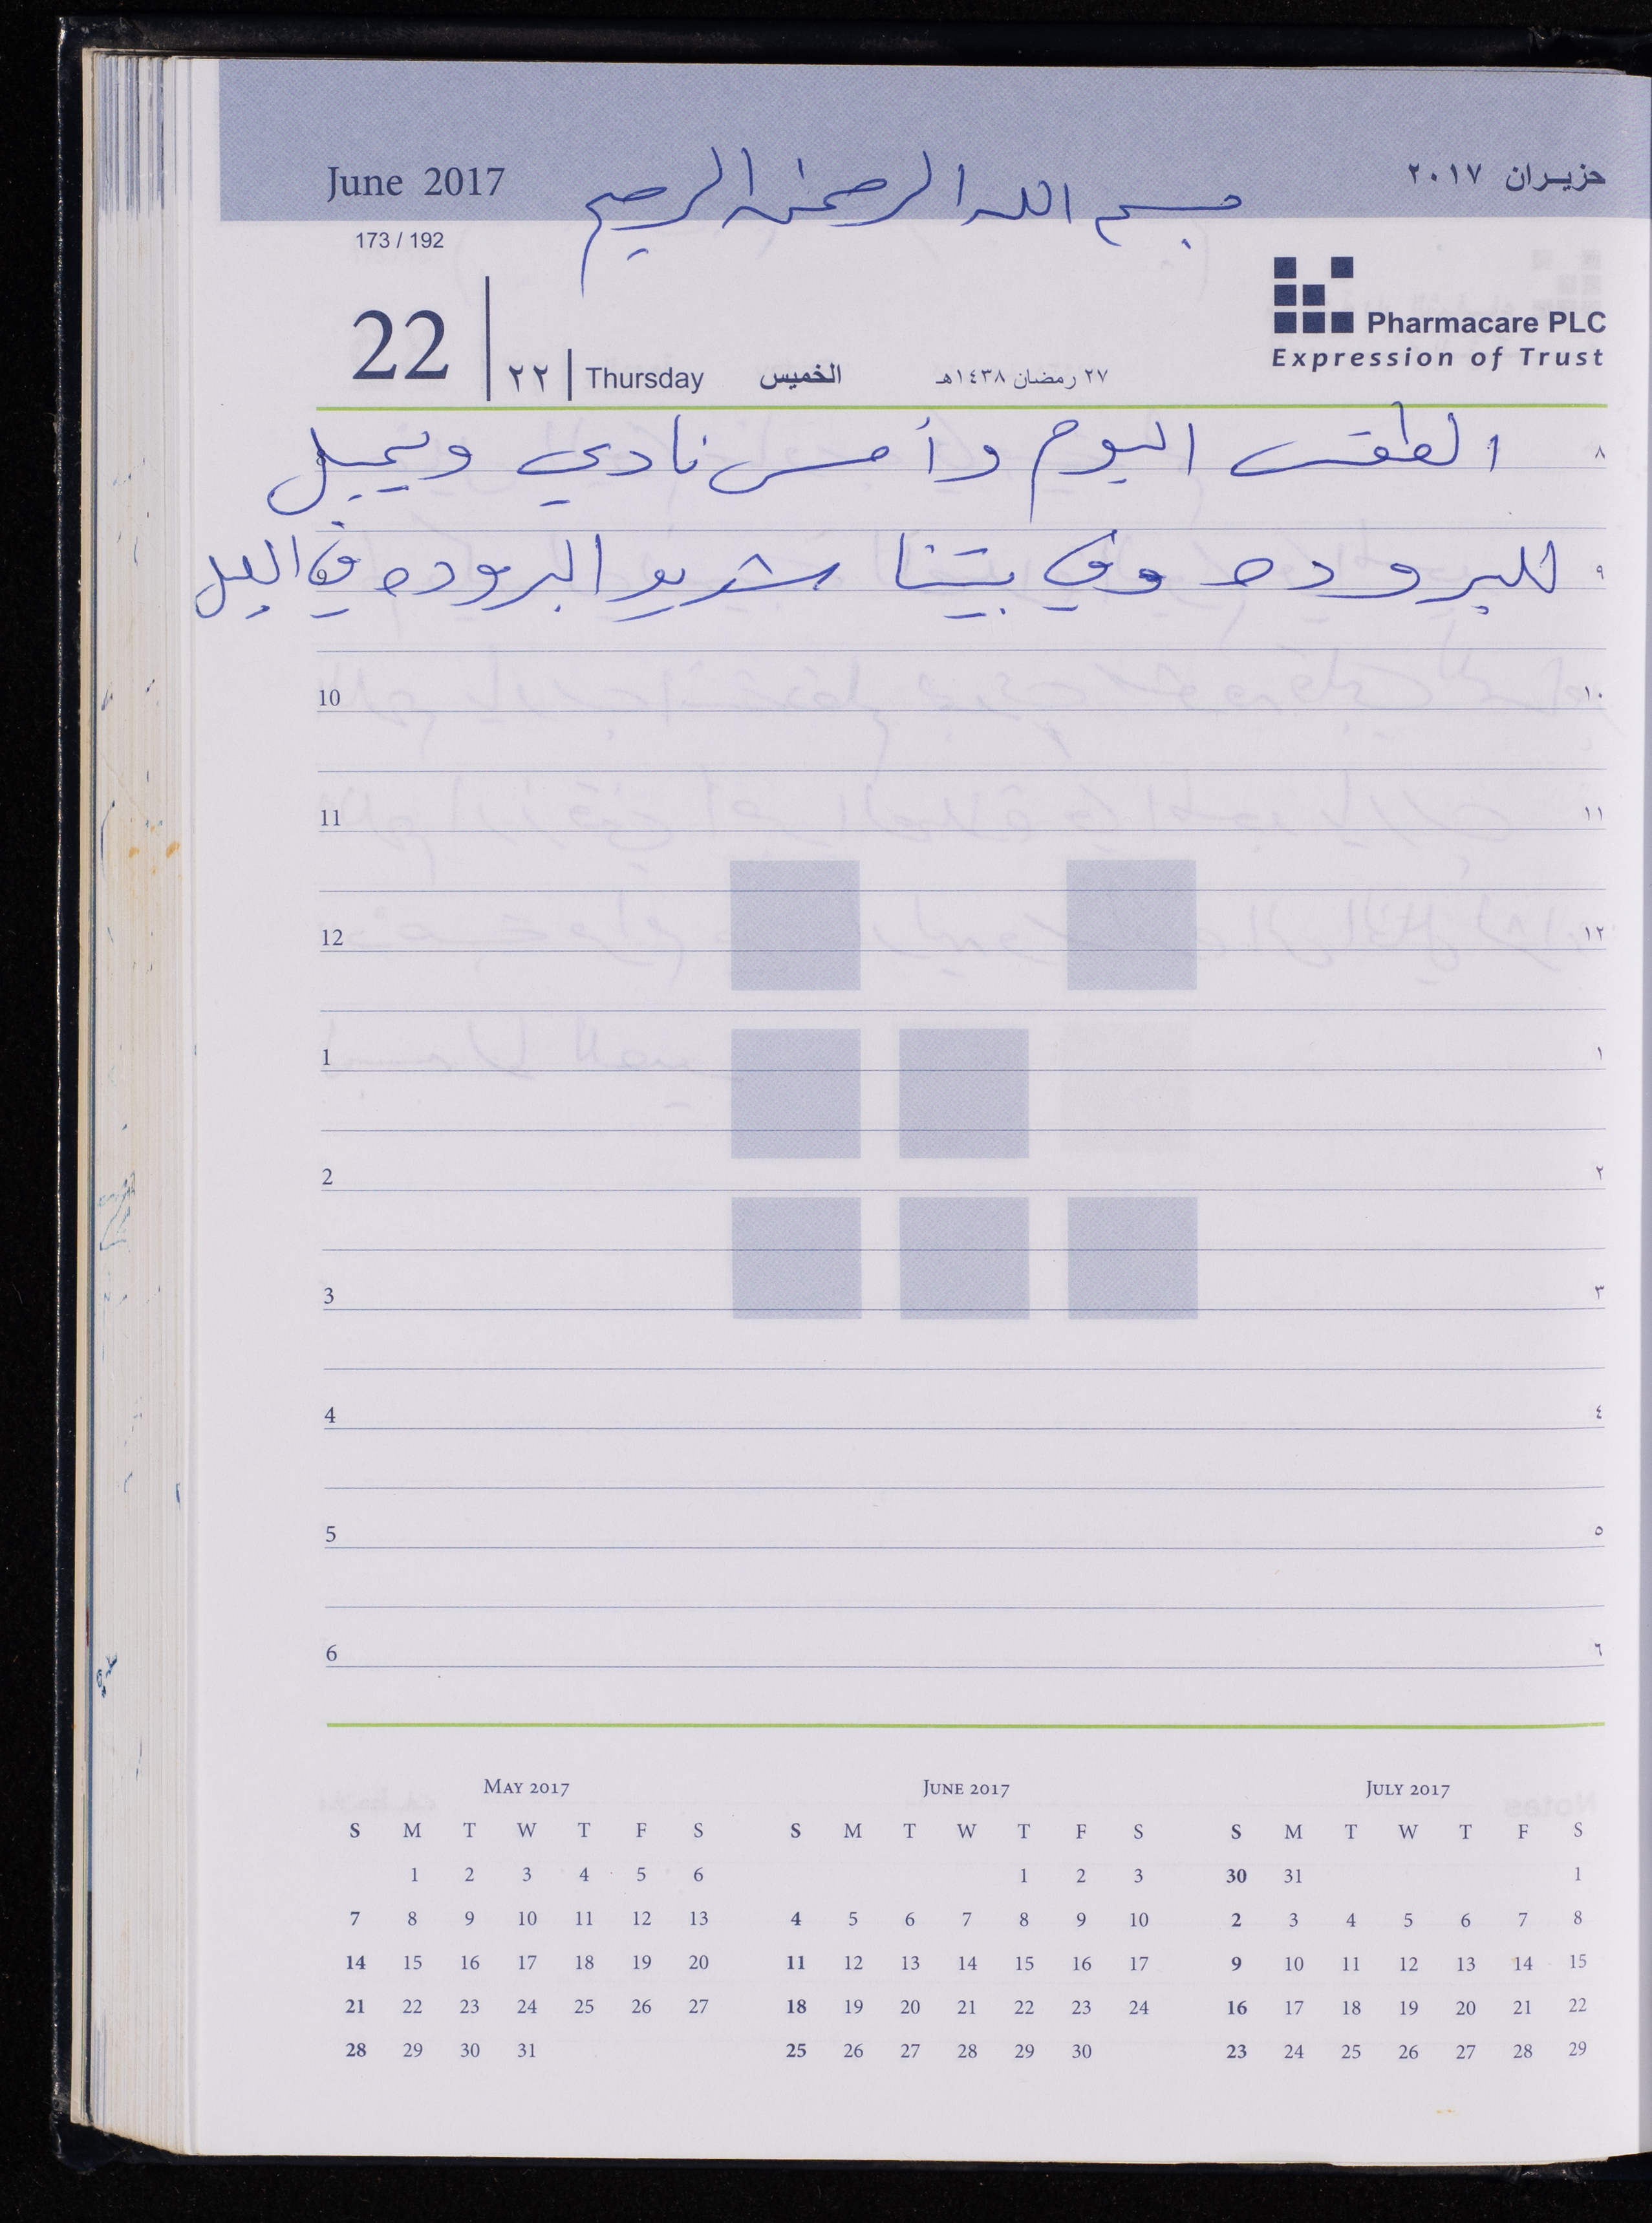 June 2017 بسم الله الرحمن الرحيم حزيران ٢٠١٧
173 / 192
Pharmacare PLC
Expression of Trust
22 ٢٢ Thursday الخميس ٢٧ رمضان ١٤٣٨هـ
الطقس اليوم وأمس نادي ويميل ٨
للبروده وفي بيتنا شديد البروده في اليل ٩
10 ١٠
11 ١١
12 ١٢
1 ١
2 ٢
3 ٣
4 ٤
5 ٥
6 ٦
MAY 2017 JUNE 2017 JULY 2017
S M T W T F S S M T W T F S S M T W T F S
1 2 3 4 5 6 1 2 3 30 31 1
7 8 9 10 11 12 13 4 5 6 7 8 9 10 2 3 4 5 6 7 8
14 15 16 17 18 19 20 11 12 13 14 15 16 17 9 10 11 12 13 14 15
21 22 23 24 25 26 27 18 19 20 21 22 23 24 16 17 18 19 20 21 22
28 29 30 31 25 26 27 28 29 30 23 24 25 26 27 28 29